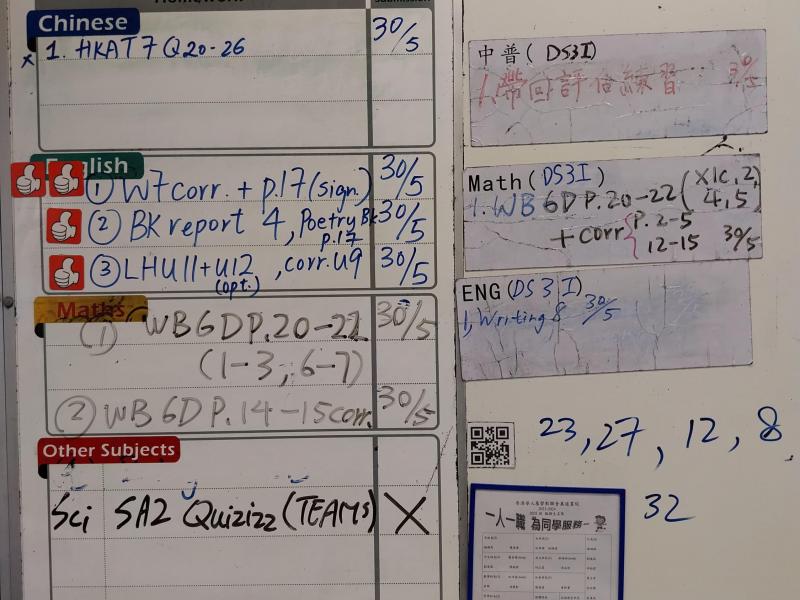 Chinese
1. HKAT 7 Q20-26 30/5
English
① W7 corr. + p.17 (sign.) 30/5
② BK report 4, Poetry BK p.17 30/5
③ LHU11+U12 (opt.), corr. U9 30/5
Maths
① WB6D P.20-22 30/5
(1-3, 6-7)
② WB 6D P.14-15 corr. 30/5
Other Subjects
Sci SA2 Quizizz (TEAMS) X
中普( DS3I )
1. 帶回評估練習 30/5
Math (DS3I)
1. WB 6D P.20-22 (X1c, 2, 4, 5)
+ corr { P.2-5
12-15 30/5
ENG (DS3I)
1, Writing 8 30/5
23, 27, 12, 8
32
一人一職 為同學服務